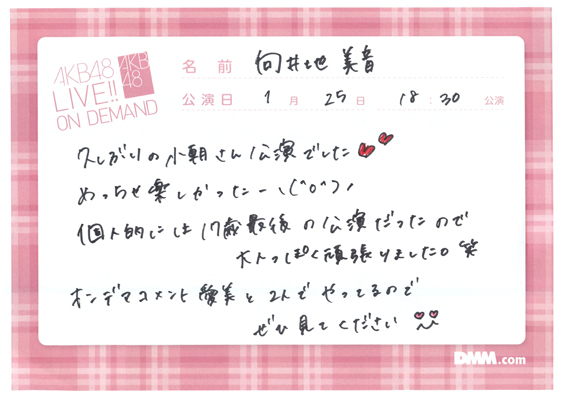 AKB48
LIVE!!
ON DEMAND
AKB
48
名前 向井地 美音
公演日 1月 25日 18:30 公演
久しぶりの小朝さん公演でした
めっちゃ楽しかったー\(^o^)/
個人的には17歳最後の公演だったので
大人っぽく頑張りました。笑
オンデマコメント 愛美と2人で やってるので
ぜひ見てください
DMM.com